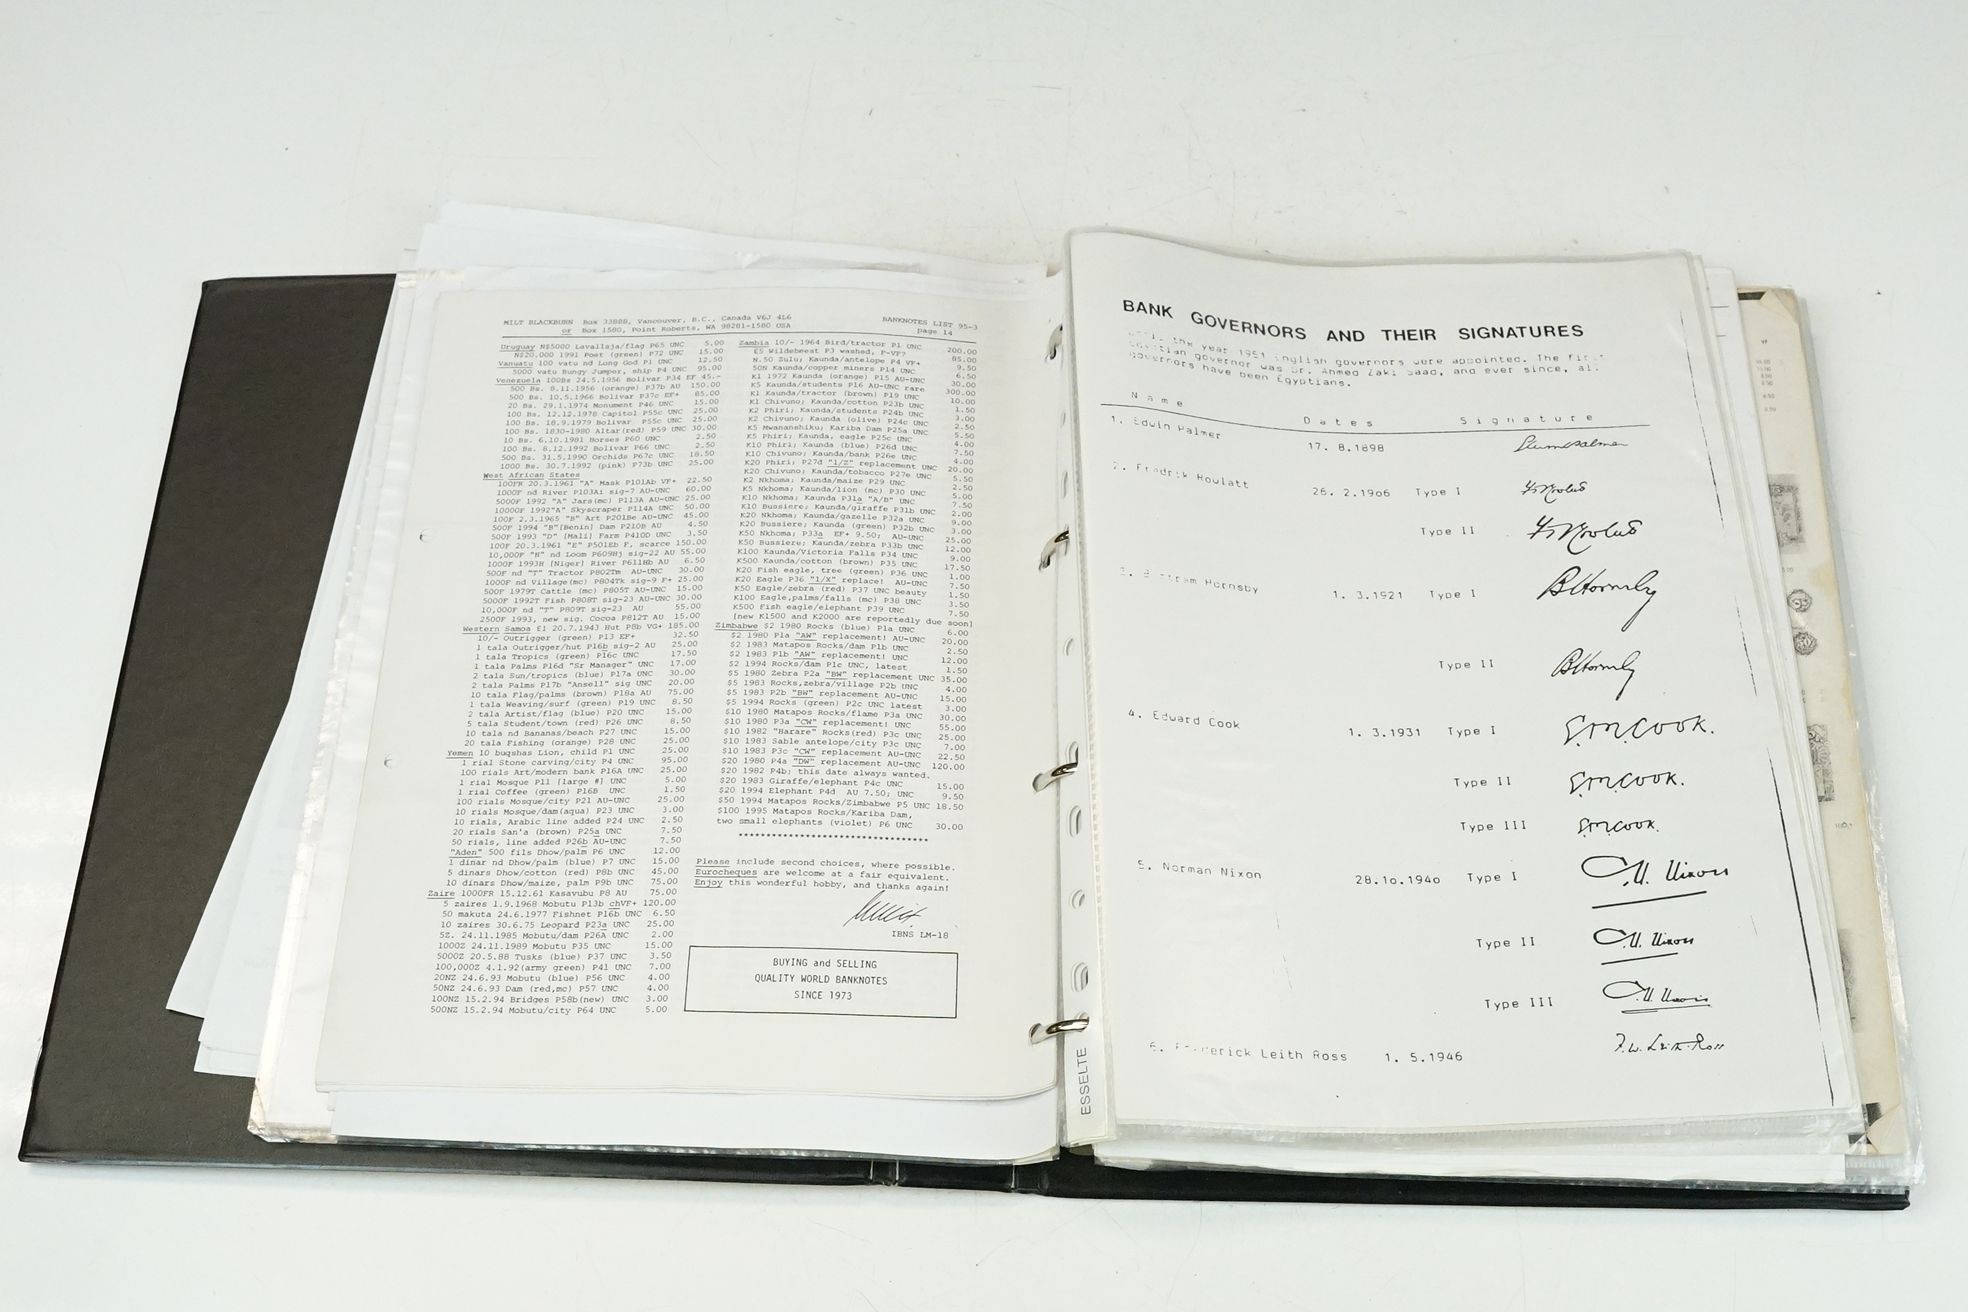 MILT BLACKBURN Box 33888, Vancouver, B.C., Canada V6J 4L6
or Box 1580, Point Roberts, WA 98281-1580 USA
BANKNOTES LIST 95-3
page 14
Uruguay N$5000 Lavalleja/flag P65 UNC 5.00
N$20,000 1991 Poet (green) P72 UNC 15.00
Vanuatu 100 vatu nd Long God P1 UNC 12.50
5000 vatu Bungy Jumper, ship P4 UNC 95.00
Venezuela 100Bs 24.5.1956 Bolivar P34 EF 45.-
500 Bs. 8.11.1956 (orange) P37b AU 150.00
500 Bs. 10.5.1966 Bolivar P37c EF+ 85.00
20 Bs. 29.1.1974 Monument P46 UNC 15.00
100 Bs. 12.12.1978 Capitol P55c UNC 25.00
100 Bs. 18.9.1979 Bolivar P55c UNC 25.00
100 Bs. 1830-1980 Altar(red) P59 UNC 30.00
10 Bs. 6.10.1981 Horses P60 UNC 2.50
100 Bs. 8.12.1992 Bolivar P66 UNC 2.50
500 Bs. 31.5.1990 Orchids P67c UNC 18.50
1000 Bs. 30.7.1992 (pink) P73b UNC 25.00
West African States
100FR 20.3.1961 "A" Mask P101Ab VF+ 22.50
1000F nd River P103Ai sig-7 AU-UNC 60.00
5000F 1992 "A" Jars(mc) P113A AU-UNC 25.00
10000F 1992"A" Skyscraper P114A UNC 50.00
100F 2.3.1965 "B" Art P201Be AU-UNC 45.00
500F 1994 "B"[Benin] Dam P210B AU 4.50
500F 1993 "D" [Mali] Farm P410D UNC 3.50
100F 20.3.1961 "E" P501Eb F, scarce 150.00
10,000F "H" nd Loom P609Hj sig-22 AU 55.00
1000F 1993H [Niger] River P611Hb AU 6.50
500F nd "T" Tractor P802Tm AU-UNC 30.00
1000F nd Village(mc) P804Tk sig-9 F+ 25.00
500F 1979T Cattle (mc) P805T AU-UNC 15.00
5000F 1992T Fish P808T sig-23 AU-UNC 30.00
10,000F nd "T" P809T sig-23 AU 55.00
2500F 1993, new sig. Cocoa P812T AU 15.00
Western Samoa £1 20.7.1943 Hut P8b VG+ 185.00
10/- Outrigger (green) P13 EF+ 32.50
1 tala Outrigger/hut P16b sig-2 AU 25.00
1 tala Tropics (green) P16c UNC 17.50
1 tala Palms P16d "Sr Manager" UNC 17.00
2 tala Sun/tropics (blue) P17a UNC 30.00
2 tala Palms P17b "Ansell" sig UNC 20.00
10 tala Flag/palms (brown) P18a AU 75.00
1 tala Weaving/surf (green) P19 UNC 8.50
2 tala Artist/flag (blue) P20 UNC 15.00
5 tala Student/town (red) P26 UNC 8.50
10 tala nd Bananas/beach P27 UNC 15.00
20 tala Fishing (orange) P28 UNC 25.00
Yemen 10 buqshas Lion, child P1 UNC 25.00
1 rial Stone carving/city P4 UNC 95.00
100 rials Art/modern bank P16A UNC 25.00
1 rial Mosque P11 [large #] UNC 5.00
1 rial Coffee (green) P16B UNC 1.50
100 rials Mosque/city P21 AU-UNC 25.00
10 rials Mosque/dam(aqua) P23 UNC 3.00
10 rials, Arabic line added P24 UNC 2.50
20 rials San'a (brown) P25a UNC 7.50
50 rials, line added P26b AU-UNC 7.50
"Aden" 500 fils Dhow/palm P6 UNC 12.00
1 dinar nd Dhow/palm (blue) P7 UNC 15.00
5 dinars Dhow/cotton (red) P8b UNC 45.00
10 dinars Dhow/maize, palm P9b UNC 75.00
Zaire 1000FR 15.12.61 Kasavubu P8 AU 75.00
5 zaires 1.9.1968 Mobutu P13b chVF+ 120.00
50 makuta 24.6.1977 Fishnet P16b UNC 6.50
10 zaires 30.6.75 Leopard P23a UNC 25.00
5Z. 24.11.1985 Mobutu/dam P26A UNC 2.00
1000Z 24.11.1989 Mobutu P35 UNC 15.00
5000Z 20.5.88 Tusks (blue) P37 UNC 3.50
100,000Z 4.1.92(army green) P41 UNC 7.00
20NZ 24.6.93 Mobutu (blue) P56 UNC 4.00
50NZ 24.6.93 Dam (red,mc) P57 UNC 4.00
100NZ 15.2.94 Bridges P58b(new) UNC 3.00
500NZ 15.2.94 Mobutu/city P64 UNC 5.00
Zambia 10/- 1964 Bird/tractor P1 UNC 200.00
£5 Wildebeest P3 washed, F-VF? 85.00
N.50 Zulu; Kaunda/antelope P4 VF+ 9.50
50N Kaunda/copper miners P14 UNC 6.50
K1 1972 Kaunda (orange) P15 AU-UNC 30.00
K5 Kaunda/students P16 AU-UNC rare 300.00
K1 Kaunda/tractor (brown) P19 UNC 10.00
K1 Chivuno; Kaunda/cotton P23b UNC 1.50
K2 Phiri; Kaunda/students P24b UNC 3.00
K2 Chivuno; Kaunda (olive) P24c UNC 2.50
K5 Mwananshiku; Kariba Dam P25a UNC 5.50
K5 Phiri; Kaunda, eagle P25c UNC 4.00
K10 Phiri; Kaunda (blue) P26d UNC 7.50
K10 Chivuno; Kaunda/bank P26e UNC 4.00
K20 Phiri; P27d "1/Z" replacement UNC 20.00
K20 Chivuno; Kaunda/tobacco P27e UNC 5.50
K2 Nkhoma; Kaunda/maize P29 UNC 2.50
K5 Nkhoma; Kaunda/lion (mc) P30 UNC 5.00
K10 Nkhoma; Kaunda P31a "A/B" UNC 7.50
K10 Bussiere; Kaunda/giraffe P31b UNC 2.00
K20 Nkhoma; Kaunda/gazelle P32a UNC 9.00
K20 Bussiere; Kaunda (green) P32b UNC 3.00
K50 Nkhoma; P33a EF+ 9.50; AU-UNC 25.00
K50 Bussiere; Kaunda/zebra P33b UNC 12.00
K100 Kaunda/Victoria Falls P34 UNC 9.00
K500 Kaunda/cotton (brown) P35 UNC 17.50
K20 Fish eagle, tree (green) P36 UNC 1.00
K20 Eagle P36 "1/X" replace! AU-UNC 7.50
K50 Eagle/zebra (red) P37 UNC beauty 1.50
K100 Eagle,palms/falls (mc) P38 UNC 3.50
K500 Fish eagle/elephant P39 UNC 7.50
[new K1500 and K2000 are reportedly due soon]
Zimbabwe $2 1980 Rocks (blue) P1a UNC 6.00
$2 1980 P1a "AW" replacement! AU-UNC 20.00
$2 1983 Matapos Rocks/dam P1b UNC 2.50
$2 1983 P1b "AW" replacement! UNC 12.00
$2 1994 Rocks/dam P1c UNC, latest 1.50
$5 1980 Zebra P2a "BW" replacement UNC 35.00
$5 1983 Rocks,zebra/village P2b UNC 4.00
$5 1983 P2b "BW" replacement AU-UNC 15.00
$5 1994 Rocks (green) P2c UNC latest 3.00
$10 1980 Matapos Rocks/flame P3a UNC 30.00
$10 1980 P3a "CW" replacement! UNC 55.00
$10 1982 "Harare" Rocks(red) P3c UNC 25.00
$10 1983 Sable antelope/city P3c UNC 7.00
$10 1983 P3c "CW" replacement AU-UNC 22.50
$20 1980 P4a "DW" replacement AU-UNC 120.00
$20 1982 P4b; this date always wanted.
$20 1983 Giraffe/elephant P4c UNC 15.00
$20 1994 Elephant P4d AU 7.50; UNC 9.50
$50 1994 Matapos Rocks/Zimbabwe P5 UNC 18.50
$100 1995 Matapos Rocks/Kariba Dam,
two small elephants (violet) P6 UNC 30.00
******************************
Please include second choices, where possible.
Eurocheques are welcome at a fair equivalent.
Enjoy this wonderful hobby, and thanks again!
IBNS LM-18
BUYING and SELLING
QUALITY WORLD BANKNOTES
SINCE 1973
ESSELTE
BANK GOVERNORS AND THEIR SIGNATURES
the year 1951 English governors were appointed. The first
Egyptian governor was Dr. Ahmed Zaki Saad, and ever since, all
governors have been Egyptians.
Name Dates Signature
1. Edwin Palmer 17. 8.1898
2. Fredrik Rowlatt 26. 2.1906 Type I
Type II
3. Bertram Hornsby 1. 3.1921 Type I BHornsby
Type II BHornsby
4. Edward Cook 1. 3.1931 Type I E.M.COOK.
Type II E.M.COOK.
Type III E.M.COOK.
5. Norman Nixon 28.10.1940 Type I
Type II
Type III
6. Frederick Leith Ross 1. 5.1946 F.W. Leith-Ross